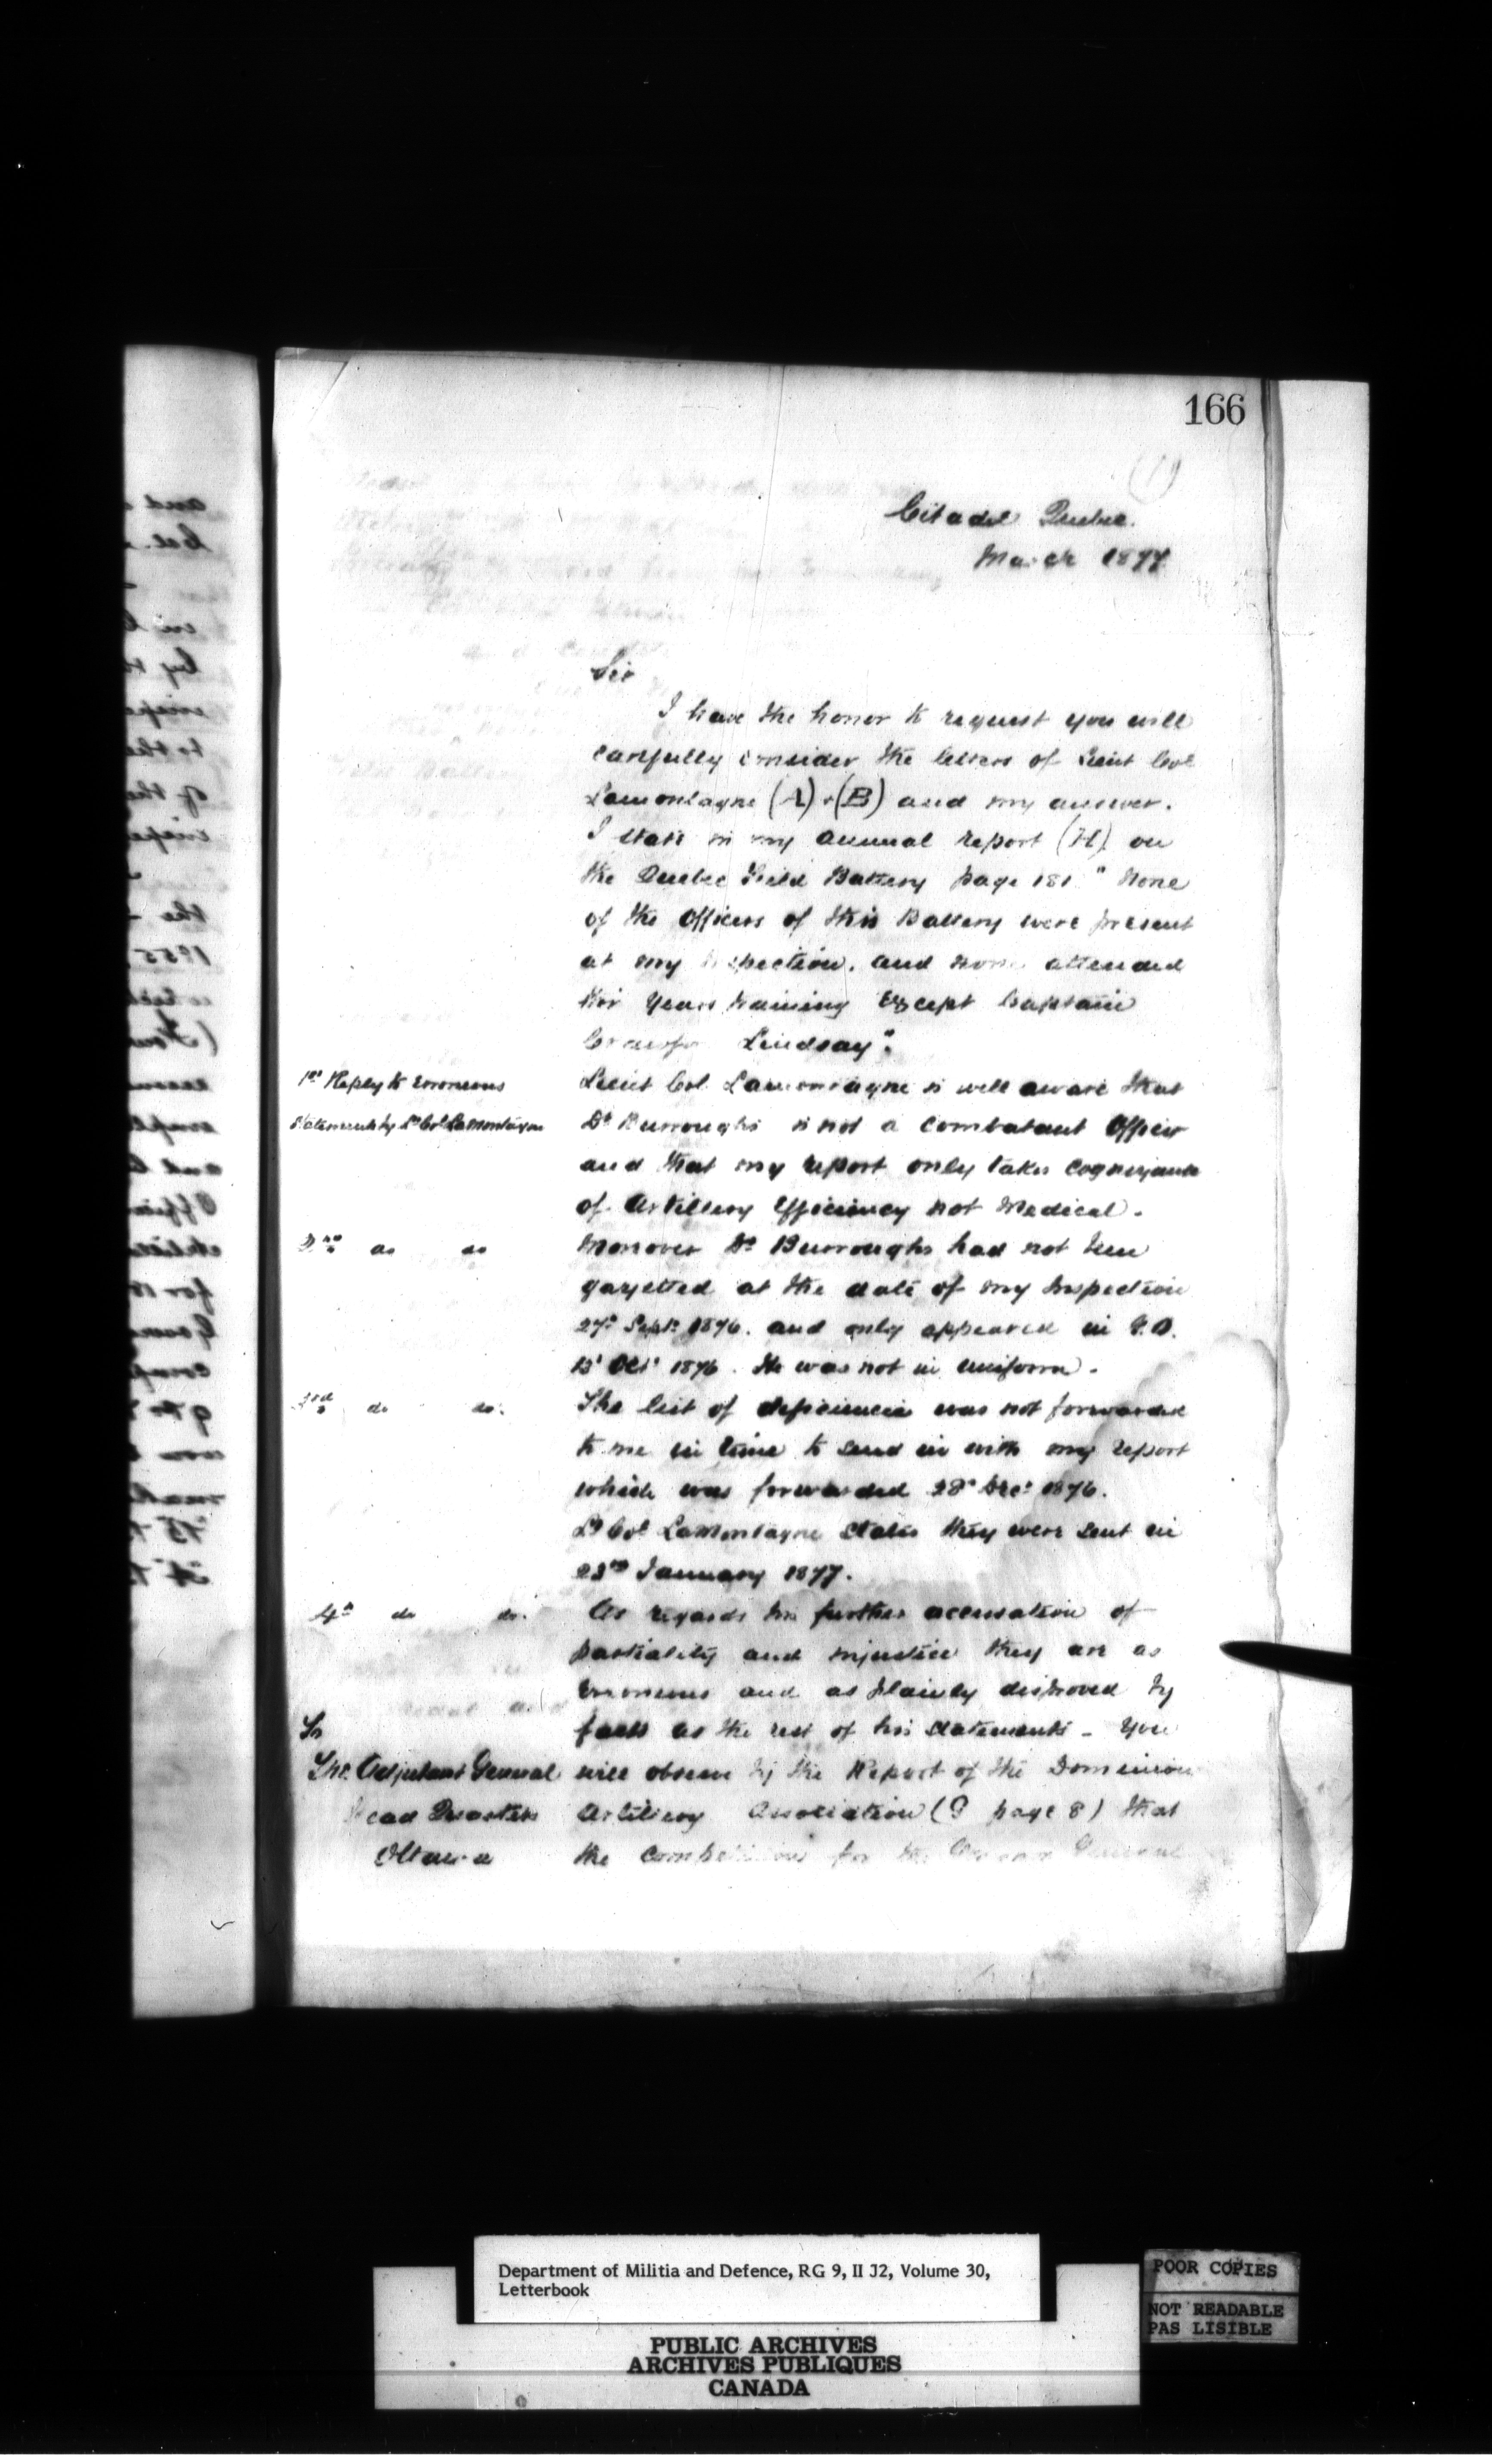 166
(1)
Citadel Quebec.
March 1877
Sir
I have the honor to request you will
carefully consider the letters of Lieut Col
Lamontagne (A) + (B) and my answer.
I state in my annual report (H) on
the Quebec Field Battery page 181 " None
of the Officers of this Battery were present
at my Inspection, and none attended
this Years training except Captain
Crawford Lindsay".
1st Reply to erroneous
statements by Lt Col LaMontagne
Lieut Col Lamontagne is well aware that
Dr Burroughs is not a Combatant Officer
and that my report only takes cognizance
of Artillery Efficiency not Medical.
2nd do do
Moreover Dr Burroughs had not been
gazetted at the date of my Inspection
27th Sept. 1876. and only appeared in G.O.
13th Oct 1876. He was not in uniform.
3rd do do.
The list of deficiencies was not forwarded
to me in time to send in with my report
which was forwarded 28th Dec. 1876.
Lt Col LaMontagne states they were sent in
23rd January 1877.
4th do do.
As regards his further accusation of
partiality and injustice they are as
erroneous and as plainly disproved by
facts as the rest of his statements - You
To
The Adjutant General
Head Quarters
Ottawa
will observe by the Report of the Dominion
Artillery Association ( page 8) that
the Competitions for the General
Department of Militia and Defence, RG 9, II J2, Volume 30,
Letterbook
PUBLIC ARCHIVES
ARCHIVES PUBLIQUES
CANADA
POOR COPIES
NOT READABLE
PAS LISIBLE